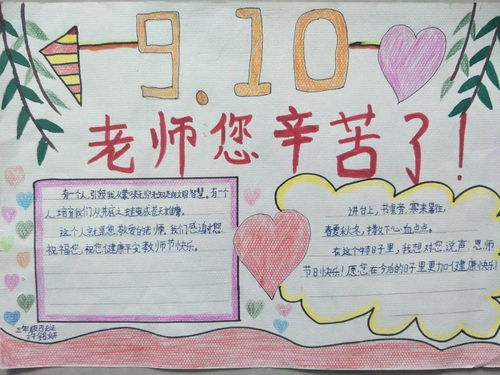 9.10
老师您辛苦了!
有一个人,引领我从蒙昧无知走向文明智慧。有一个
人,培育我们从井底之蛙变成苍天雄鹰。
这个人就是您敬爱的老师,我们感谢您,
祝福您,祝您健康平安教师节快乐。
讲台上,书桌旁,寒来暑往,
春夏秋冬,撒下心血点点。
在这个特别日子里,我想对您说声:恩师
节日快乐!愿您在今后的日子里更加健康快乐!
三年级四班